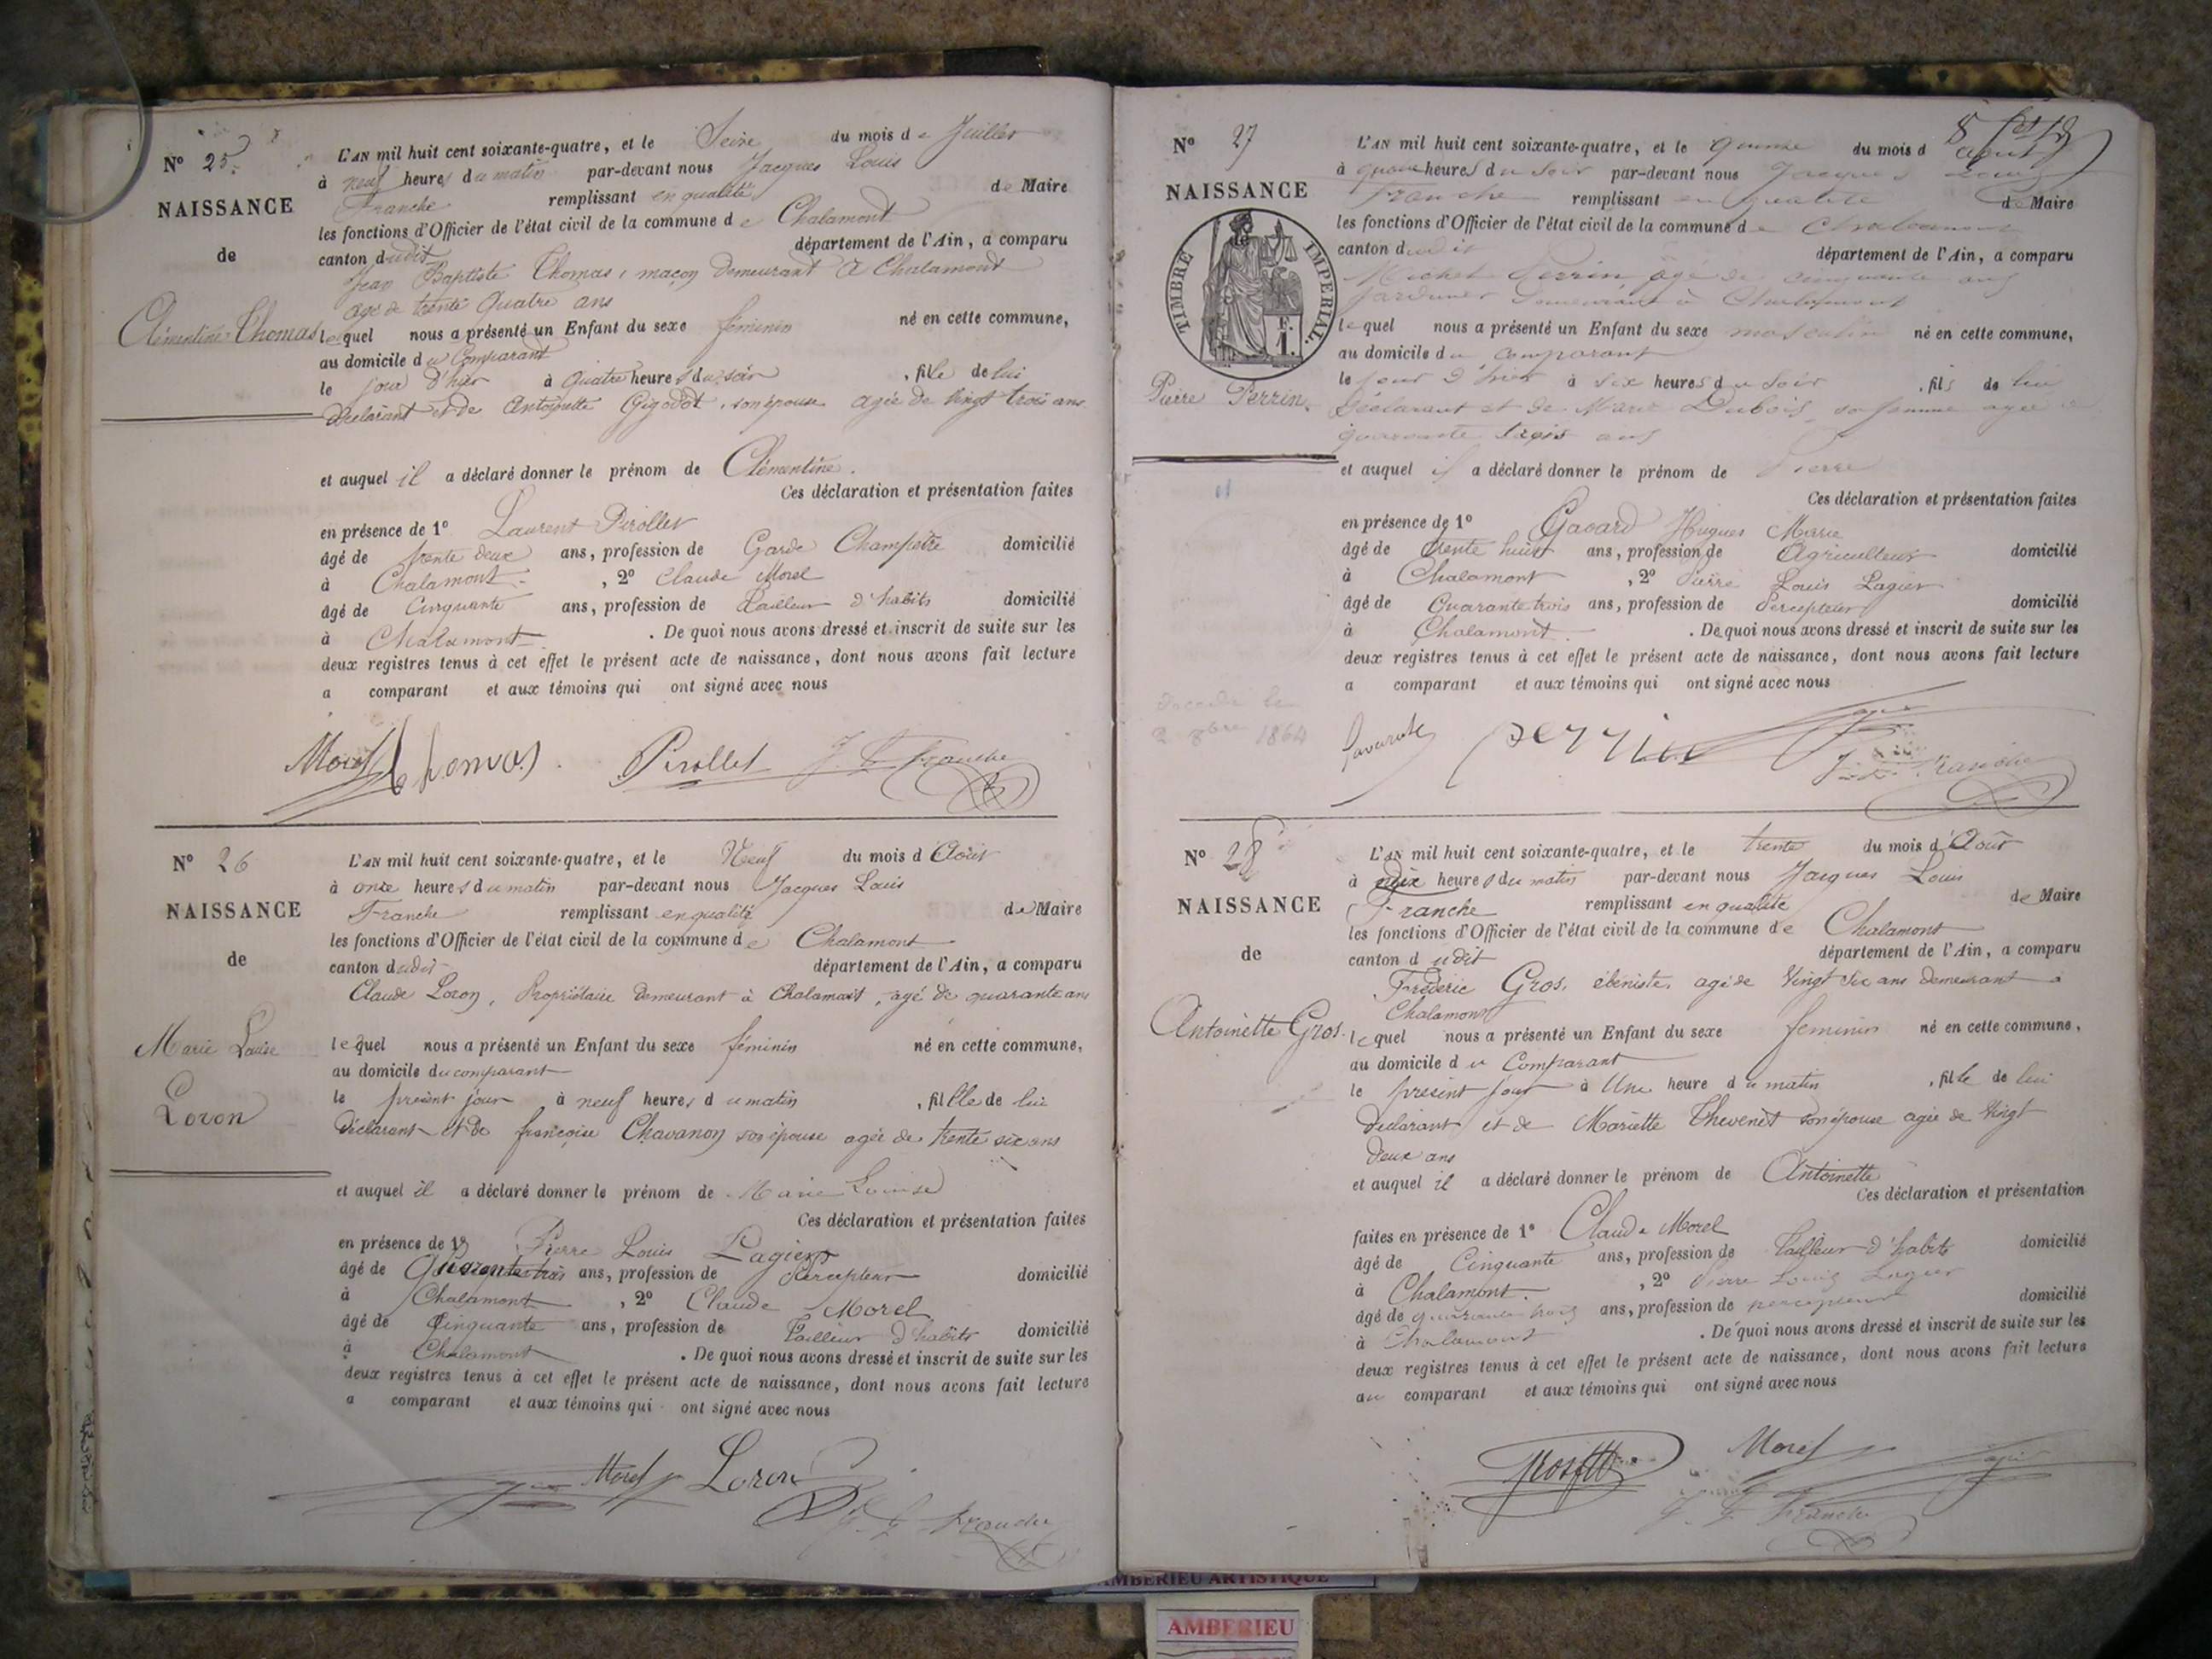 N° 25.
NAISSANCE
de
Clémentine Thomas
L'AN mil huit cent soixante-quatre, et le Seize du mois de Juillet
à neuf heures du matin par-devant nous Jacques Louis
Franche remplissant en qualité de Maire
les fonctions d'Officier de l'état civil de la commune de Chalamont
canton dudit département de l'Ain, a comparu
Jean Baptiste Thomas, maçon demeurant à Chalamont
agé de trente quatre ans
lequel nous a présenté un Enfant du sexe féminin né en cette commune,
au domicile du Comparant
le jour d'hier à quatre heures du soir, fille de lui
Déclarant et de Antoinette Gigodot, son épouse agée de vingt trois ans
et auquel il a déclaré donner le prénom de Clémentine.
Ces déclaration et présentation faites
en présence de 1° Laurent Pirollet
âgé de trente deux ans, profession de Garde Champêtre domicilié
à Chalamont, 2° Claude Morel
âgé de Cinquante ans, profession de Tailleur d'habits domicilié
à Chalamont. De quoi nous avons dressé et inscrit de suite sur les
deux registres tenus à cet effet le présent acte de naissance, dont nous avons fait lecture
a comparant et aux témoins qui ont signé avec nous
Morel Thomas Pirollet J. L. Franche
N° 26
NAISSANCE
de
Marie Louise
Loron
L'AN mil huit cent soixante-quatre, et le Neuf du mois d'Août
à onze heures du matin par-devant nous Jacques Louis
Franche remplissant en qualité de Maire
les fonctions d'Officier de l'état civil de la commune de Chalamont
canton dudit département de l'Ain, a comparu
Claude Loron, Propriétaire demeurant à Chalamont, agé de quarante ans
lequel nous a présenté un Enfant du sexe féminin né en cette commune,
au domicile du comparant
le présent jour à neuf heures du matin, fille de lui
déclarant et de françoise Chavanon son épouse agée de trente six ans
et auquel il a déclaré donner le prénom de Marie Louise
Ces déclaration et présentation faites
en présence de 1° Pierre Louis Lagier
âgé de Quarante trois ans, profession de Percepteur domicilié
à Chalamont, 2° Claude Morel
âgé de Cinquante ans, profession de Tailleur d'habits domicilié
à Chalamont. De quoi nous avons dressé et inscrit de suite sur les
deux registres tenus à cet effet le présent acte de naissance, dont nous avons fait lecture
a comparant et aux témoins qui ont signé avec nous
Morel Loron J. L. Franche
N° 27
NAISSANCE
TIMBRE IMPERIAL.
Pierre Perrin.
L'AN mil huit cent soixante-quatre, et le quinze du mois d'août
à quatre heures du soir par-devant nous Jacques Louis
Franche remplissant en qualité de Maire
les fonctions d'Officier de l'état civil de la commune de Chalamont
canton dudit département de l'Ain, a comparu
Michel Perrin, âgé de cinquante ans
jardinier demeurant à Chalamont
lequel nous a présenté un Enfant du sexe masculin né en cette commune,
au domicile du comparant
le jour d'hier à six heures du soir, fils de lui
déclarant et de Marie Dubois, sa femme agée de
quarante trois ans
et auquel il a déclaré donner le prénom de Pierre
Ces déclaration et présentation faites
en présence de 1° Hugues Marie
âgé de trente huit ans, profession de Agriculteur domicilié
à Chalamont, 2° Pierre Louis Lagier
âgé de Quarante trois ans, profession de Percepteur domicilié
à Chalamont. De quoi nous avons dressé et inscrit de suite sur les
deux registres tenus à cet effet le présent acte de naissance, dont nous avons fait lecture
a comparant et aux témoins qui ont signé avec nous
décédé le
2 8bre 1864
perrin J. L. Franche
N° 28
NAISSANCE
de
Antoinette Gros.
L'AN mil huit cent soixante-quatre, et le trente du mois d'Août
à dix heures du matin par-devant nous Jacques Louis
Franche remplissant en qualité de Maire
les fonctions d'Officier de l'état civil de la commune de Chalamont
canton dudit département de l'Ain, a comparu
Frédéric Gros, ébéniste, agé de vingt six ans demeurant à
Chalamont
lequel nous a présenté un Enfant du sexe féminin né en cette commune,
au domicile du Comparant
le présent jour à Une heure du matin, fille de lui
déclarant et de Mariette Thevenet son épouse agée de vingt
deux ans
et auquel il a déclaré donner le prénom de Antoinette
Ces déclaration et présentation
faites en présence de 1° Claude Morel
âgé de Cinquante ans, profession de Tailleur d'habits domicilié
à Chalamont., 2° Pierre Louis Lagier
âgé de quarante trois ans, profession de percepteur domicilié
à Chalamont. De quoi nous avons dressé et inscrit de suite sur les
deux registres tenus à cet effet le présent acte de naissance, dont nous avons fait lecture
au comparant et aux témoins qui ont signé avec nous
Gros Morel
J. L. Franche
AMBERIEU ARTISTIQUE
AMBERIEU